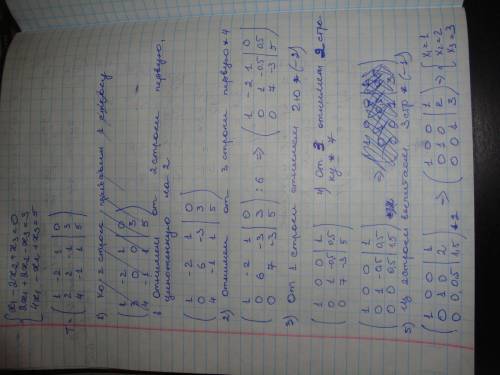 x₁ - 2x₂ + x₃ = 0
2x₁ + 2x₂ - x₃ = 3
4x₁ - x₂ + x₃ = 5
T = ( 1 -2 1 | 0
2 2 -1 | 3
4 -1 1 | 5 )
1) Ко 2 строке прибавим 1 строку
( 1 -2 1 | 0
3 0 0 | 3
4 -1 1 | 5 )
1 Отнимаем от 2 строки первую,
умноженную на 2
( 1 -2 1 | 0
0 6 -3 | 3
4 -1 1 | 5 )
2) Отнимаем от 3 строки первую * 4
( 1 -2 1 | 0
0 6 -3 | 3
0 7 -3 | 5 ) :6 ⇒ ( 1 -2 1 | 0
0 1 -0.5 | 0.5
0 7 -3 | 5 )
3) От 1 строки отнимаем 2ю * (-2)
( 1 0 0 | 1
0 1 -0.5 | 0.5
0 7 -3 | 5 )
4) От 3 отнимаем 2 стро
ку * 7
( 1 0 0 | 1
0 1 -0.5 | 0.5
0 0 0.5 | 1.5 )
5) Из 2 строки вычитаем 3 стр * (-1)
( 1 0 0 | 1
0 1 0 | 2
0 0 0.5 | 1.5 ) *2 ⇒ ( 1 0 0 | 1
0 1 0 | 2
0 0 1 | 3 ) ⇒ { x₁ = 1
x₂ = 2
x₃ = 3